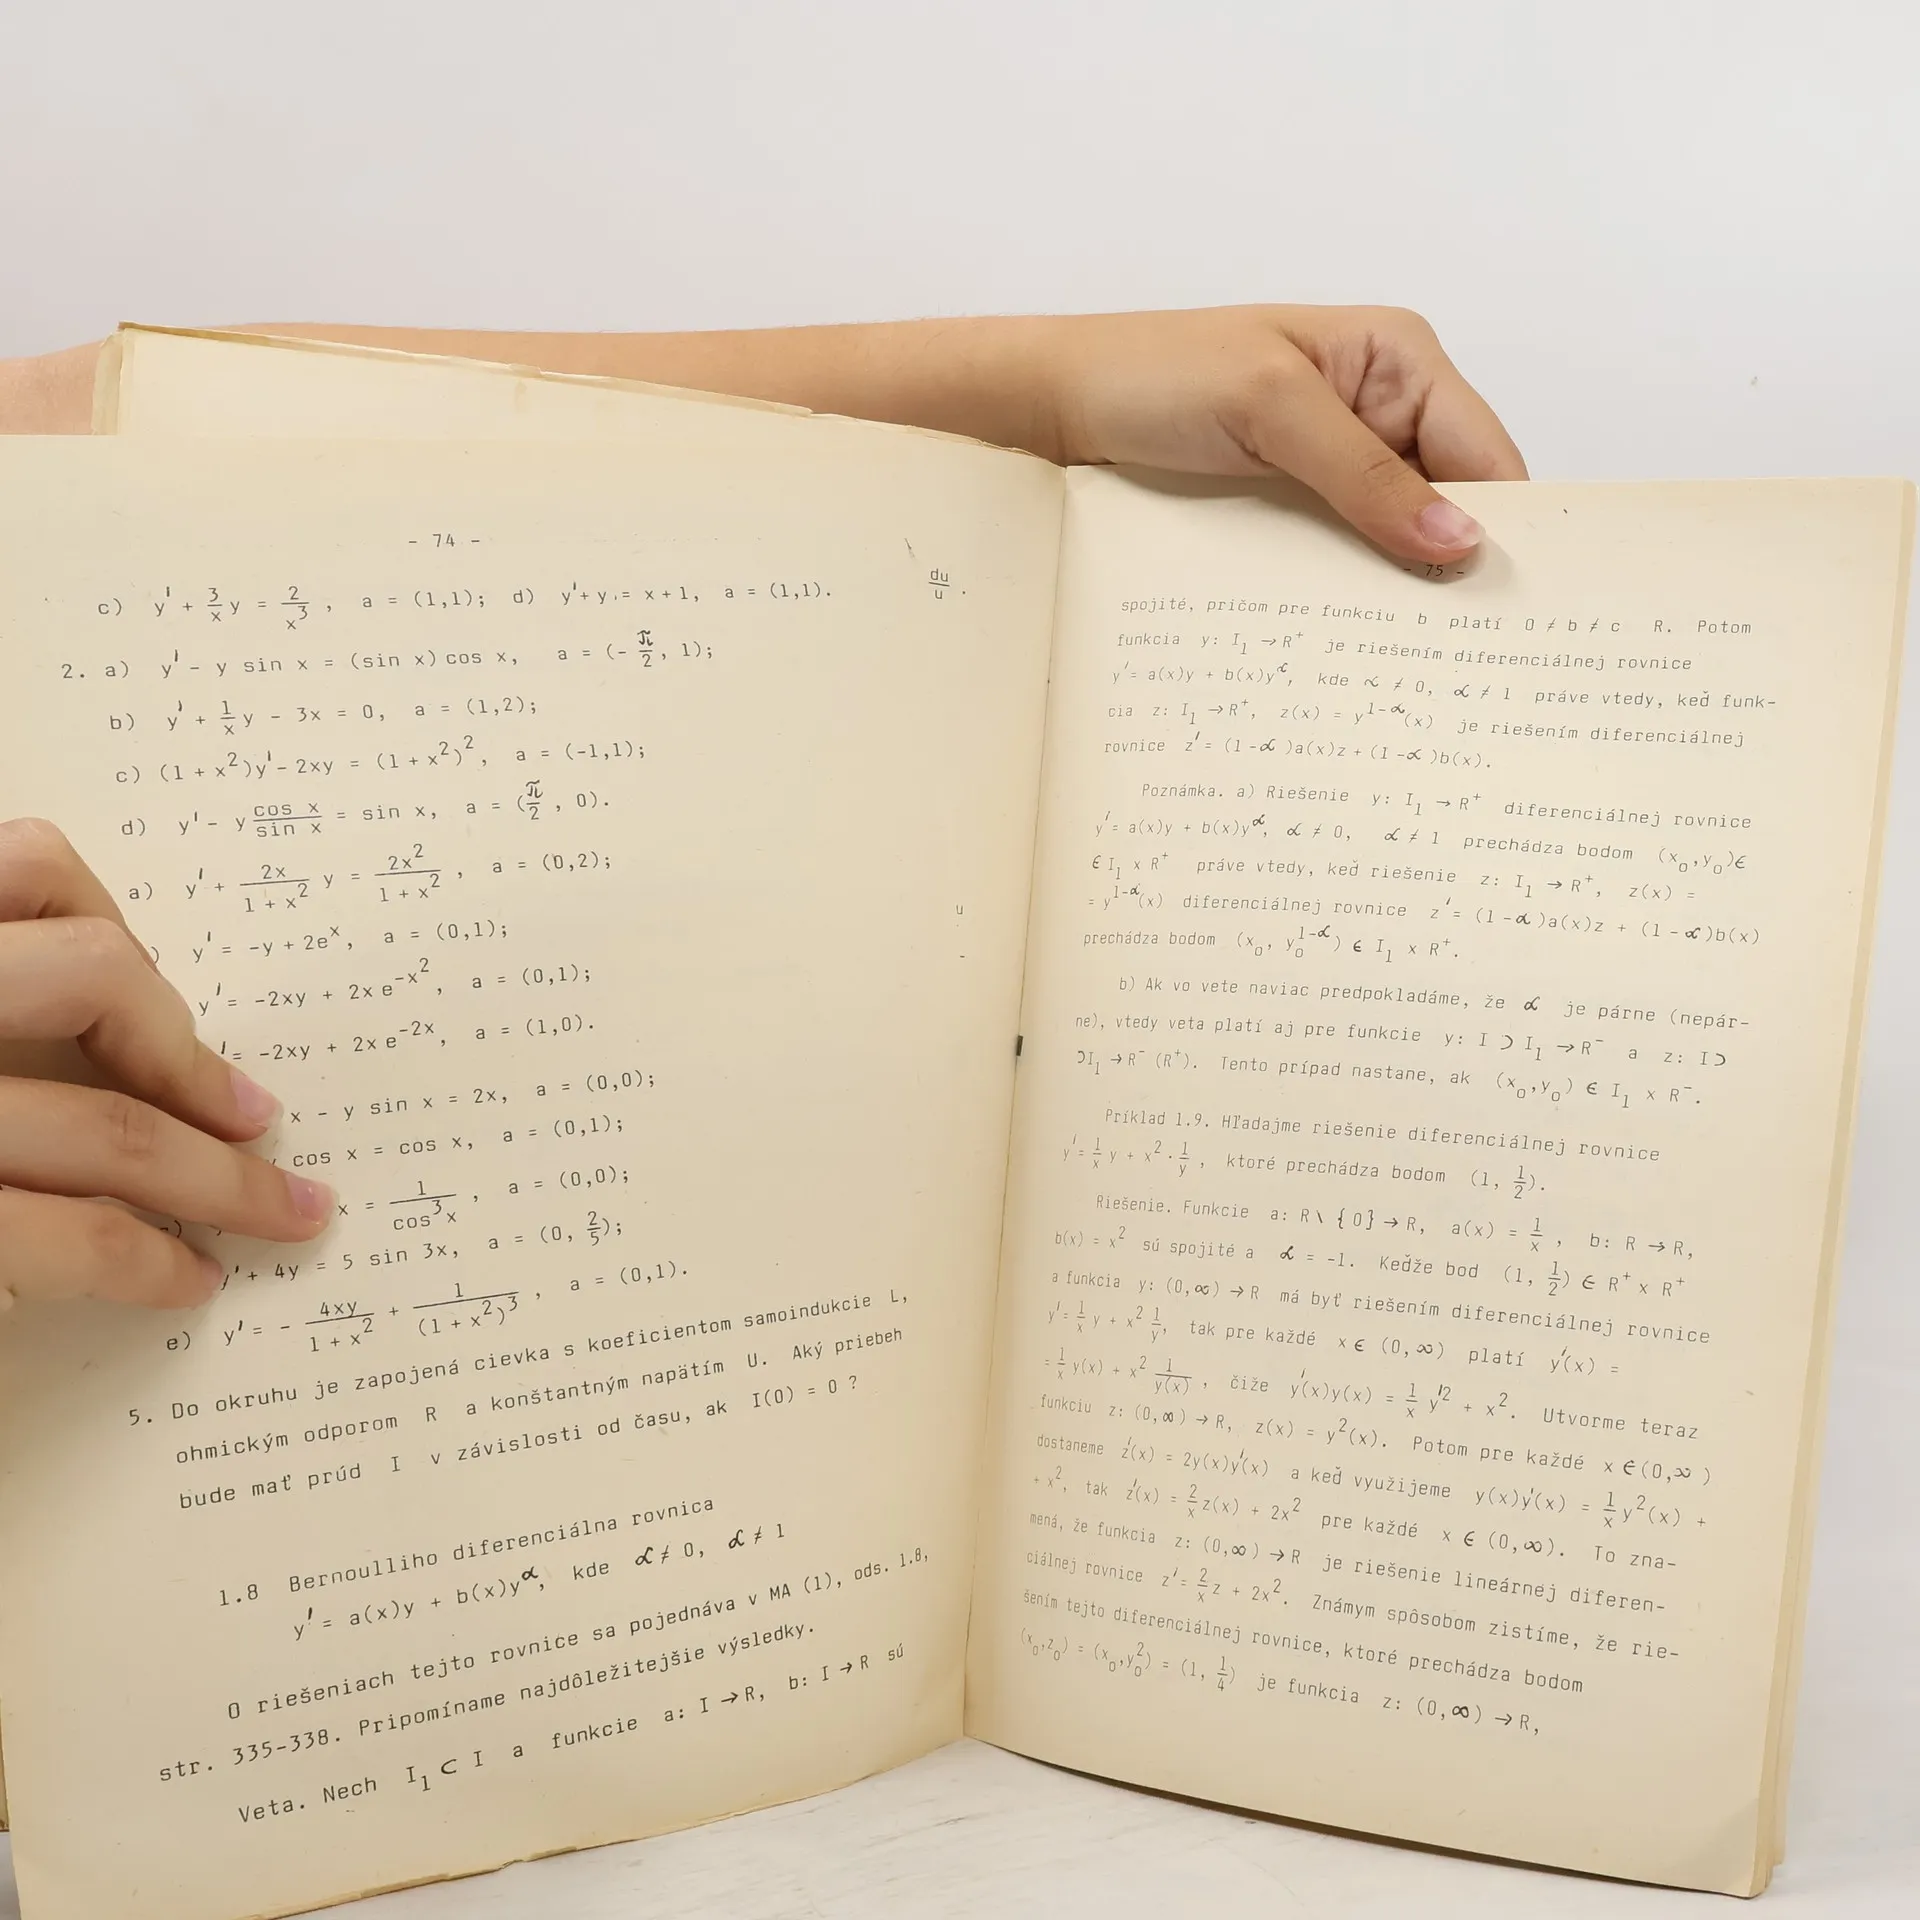 - 74 -
c) y' + 3/x y = 2/x³ , a = (1,1); d) y'+ y = x + 1, a = (1,1).
2. a) y' - y sin x = (sin x) cos x, a = (- π/2, 1);
b) y' + 1/x y - 3x = 0, a = (1,2);
c) (1 + x²)y' - 2xy = (1 + x²)², a = (-1,1);
d) y' - y cos x/sin x = sin x, a = (π/2 , 0).
a) y' + 2x/1 + x² y = 2x²/1 + x² , a = (0,2);
) y' = -y + 2eˣ, a = (0,1);
y' = -2xy + 2x e^-x², a = (0,1);
' = -2xy + 2x e^-2x, a = (1,0).
x - y sin x = 2x, a = (0,0);
cos x = cos x, a = (0,1);
x = 1/cos³x , a = (0,0);
y' + 4y = 5 sin 3x, a = (0, 2/5);
e) y' = - 4xy/1 + x² + 1/(1 + x²)³ , a = (0,1).
5. Do okruhu je zapojená cievka s koeficientom samoindukcie L,
ohmickým odporom R a konštantným napätím U. Aký priebeh
bude mať prúd I v závislosti od času, ak I(0) = 0 ?
1.8 Bernoulliho diferenciálna rovnica
y' = a(x)y + b(x)y^α, kde α ≠ 0, α ≠ 1
O riešeniach tejto rovnice sa pojednáva v MA (1), ods. 1.8,
str. 335-338. Pripomíname najdôležitejšie výsledky.
Veta. Nech I₁ ⊂ I a funkcie a: I → R, b: I → R sú
du/u .
u
- 75 -
spojité, pričom pre funkciu b platí 0 ≠ b ≠ c R. Potom
funkcia y: I₁ → R⁺ je riešením diferenciálnej rovnice
y' = a(x)y + b(x)y^α, kde α ≠ 0, α ≠ 1 práve vtedy, keď funk-
cia z: I₁ → R⁺, z(x) = y^1-α(x) je riešením diferenciálnej
rovnice z' = (1 - α )a(x)z + (1 - α )b(x).
Poznámka. a) Riešenie y: I₁ → R⁺ diferenciálnej rovnice
y' = a(x)y + b(x)y^α, α ≠ 0, α ≠ 1 prechádza bodom (x₀,y₀)∈
∈ I₁ x R⁺ práve vtedy, keď riešenie z: I₁ → R⁺, z(x) =
= y^1-α(x) diferenciálnej rovnice z' = (1 - α )a(x)z + (1 - α )b(x)
prechádza bodom (x₀, y₀^1-α) ∈ I₁ x R⁺.
b) Ak vo vete naviac predpokladáme, že α je párne (nepár-
ne), vtedy veta platí aj pre funkcie y: I ⊃ I₁ → R⁻ a z: I ⊃
⊃I₁ → R⁻ (R⁺). Tento prípad nastane, ak (x₀,y₀) ∈ I₁ x R⁻.
Príklad 1.9. Hľadajme riešenie diferenciálnej rovnice
y' = 1/x y + x² · 1/y , ktoré prechádza bodom (1, 1/2).
Riešenie. Funkcie a: R \ {0} → R, a(x) = 1/x , b: R → R,
b(x) = x² sú spojité a α = -1. Keďže bod (1, 1/2) ∈ R⁺ x R⁺
a funkcia y: (0,∞) → R má byť riešením diferenciálnej rovnice
y' = 1/x y + x² 1/y, tak pre každé x ∈ (0,∞) platí y'(x) =
= 1/x y(x) + x² 1/y(x) , čiže y'(x)y(x) = 1/x y'² + x². Utvorme teraz
funkciu z: (0,∞) → R, z(x) = y²(x). Potom pre každé x ∈(0,∞ )
dostaneme z'(x) = 2y(x)y'(x) a keď využijeme y(x)y'(x) = 1/x y²(x) +
+ x², tak z'(x) = 2/x z(x) + 2x² pre každé x ∈ (0,∞). To zna-
mená, že funkcia z: (0,∞ ) → R je riešenie lineárnej diferen-
ciálnej rovnice z' = 2/x z + 2x². Známym spôsobom zistíme, že rie-
šením tejto diferenciálnej rovnice, ktoré prechádza bodom
(x₀,z₀) = (x₀,y₀²) = (1, 1/4) je funkcia z: (0,∞) → R,